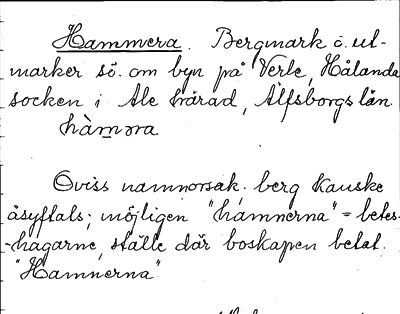 Hammera. Bergmark o. ut-
marker sö. om byn på Verle, Hålanda
socken i Ale härad, Älfsborgs län.
hàməra
Oviss namnorsak. berg kanske
åsyftats; möjligen "hamnerna" = betes-
-hagarne, ställe där boskapen betat.
"Hamnerna"